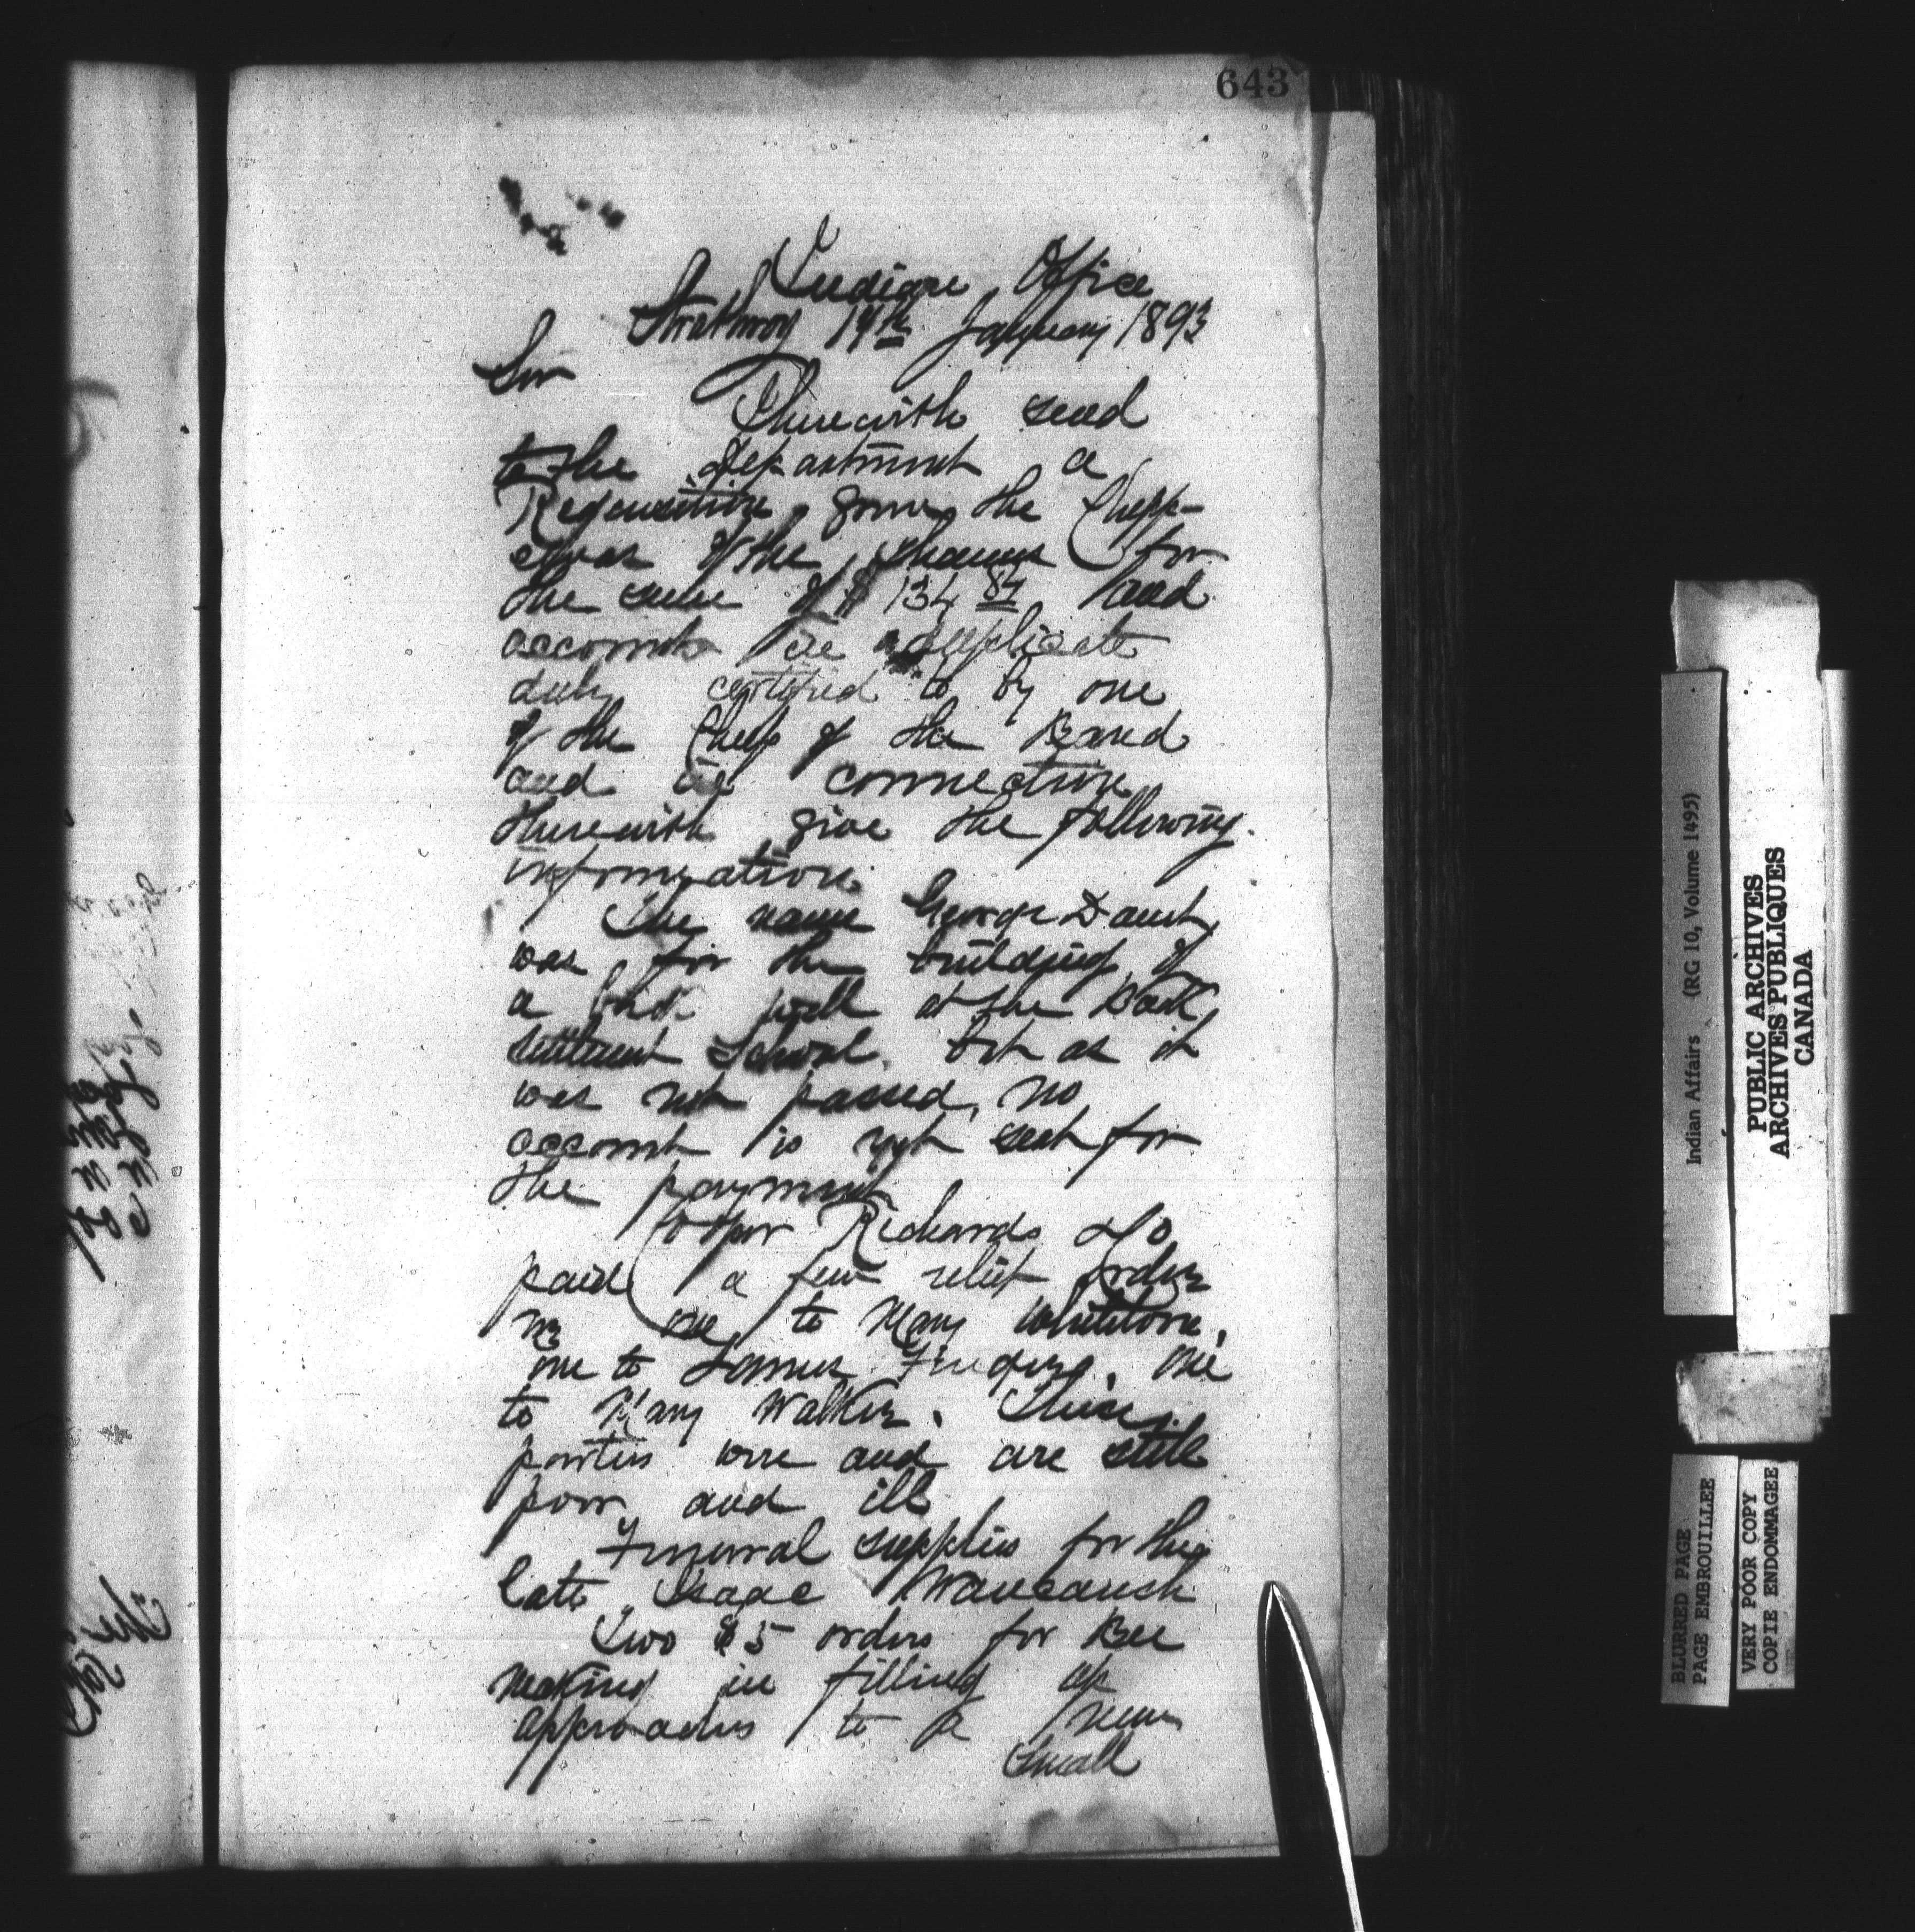 643
Indian Office
Strathroy 19th January 1893
Sir
I herewith send
to the Department a
Requisition from the Chipp-
ewas of the Thames for
the sum of $134 84 and
accounts in duplicate
duly certified to by one
of the Chiefs of the Band
and in connection
therewith give the following
information
The name George
was for the building of
a wall at the Back
settlement School. but as it
was not passed, no
account is yet sent for
the payment
Richards & Co
paid a few relief orders
one to Mary Whitelove,
one to James one
to Mary Walker. These
parties were and are still
poor and ill
Funeral supplies for the
late Isaac Waucaush
Two $5 orders for Bee
making in filling up
approaches to a new
Small
Indian Affairs (RG 10, Volume 1495)
PUBLIC ARCHIVES
ARCHIVES PUBLIQUES
CANADA
BLURRED PAGE
PAGE EMBROUILLEE
VERY POOR COPY
COPIE ENDOMMAGEE